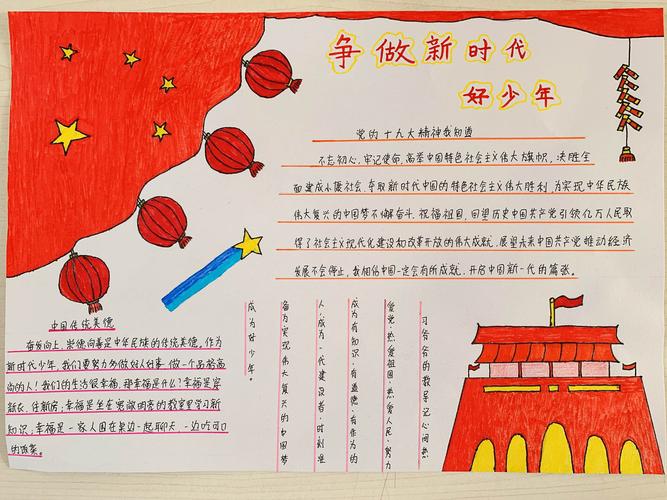 争做新时代
好少年
党的十九大精神我知道
不忘初心，牢记使命，高举中国特色社会主义伟大旗帜，决胜全
面建成小康社会，夺取新时代中国的特色社会主义伟大胜利，为实现中华民族
伟大复兴的中国梦不懈奋斗。祝福祖国，回望历史中国共产党引领亿万人民取
得了社会主义现代化建设和改革开放的伟大成就，展望未来中国共产党推动经济
发展不会停止，我相信中国一定会有所成就，开启中国新一代的篇章。
中国传统美德
奋发向上，崇德向善是中华民族的传统美德，作为
新时代少年，我们要努力多做好人好事，做一个品格高
尚的人！我们的生活很幸福，那幸福是什么？幸福是穿
新衣，住新房；幸福是坐在宽敞明亮的教室里学习新
知识；幸福是一家人围在桌边一起聊天，一边吃可口
的饭菜。
习爷爷的教导记心间热
爱党·热爱祖国·热爱人民·努力
成为有知识·有道德·有作为的
人·成为一代建设者·时刻准
备为实现伟大复兴的中国梦
成为好少年。